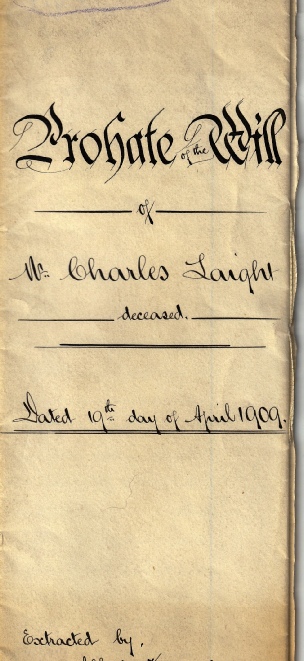 Probate of the Will
of
Mr. Charles Laight
deceased.
Dated 19th day of April 1909.
Extracted by,